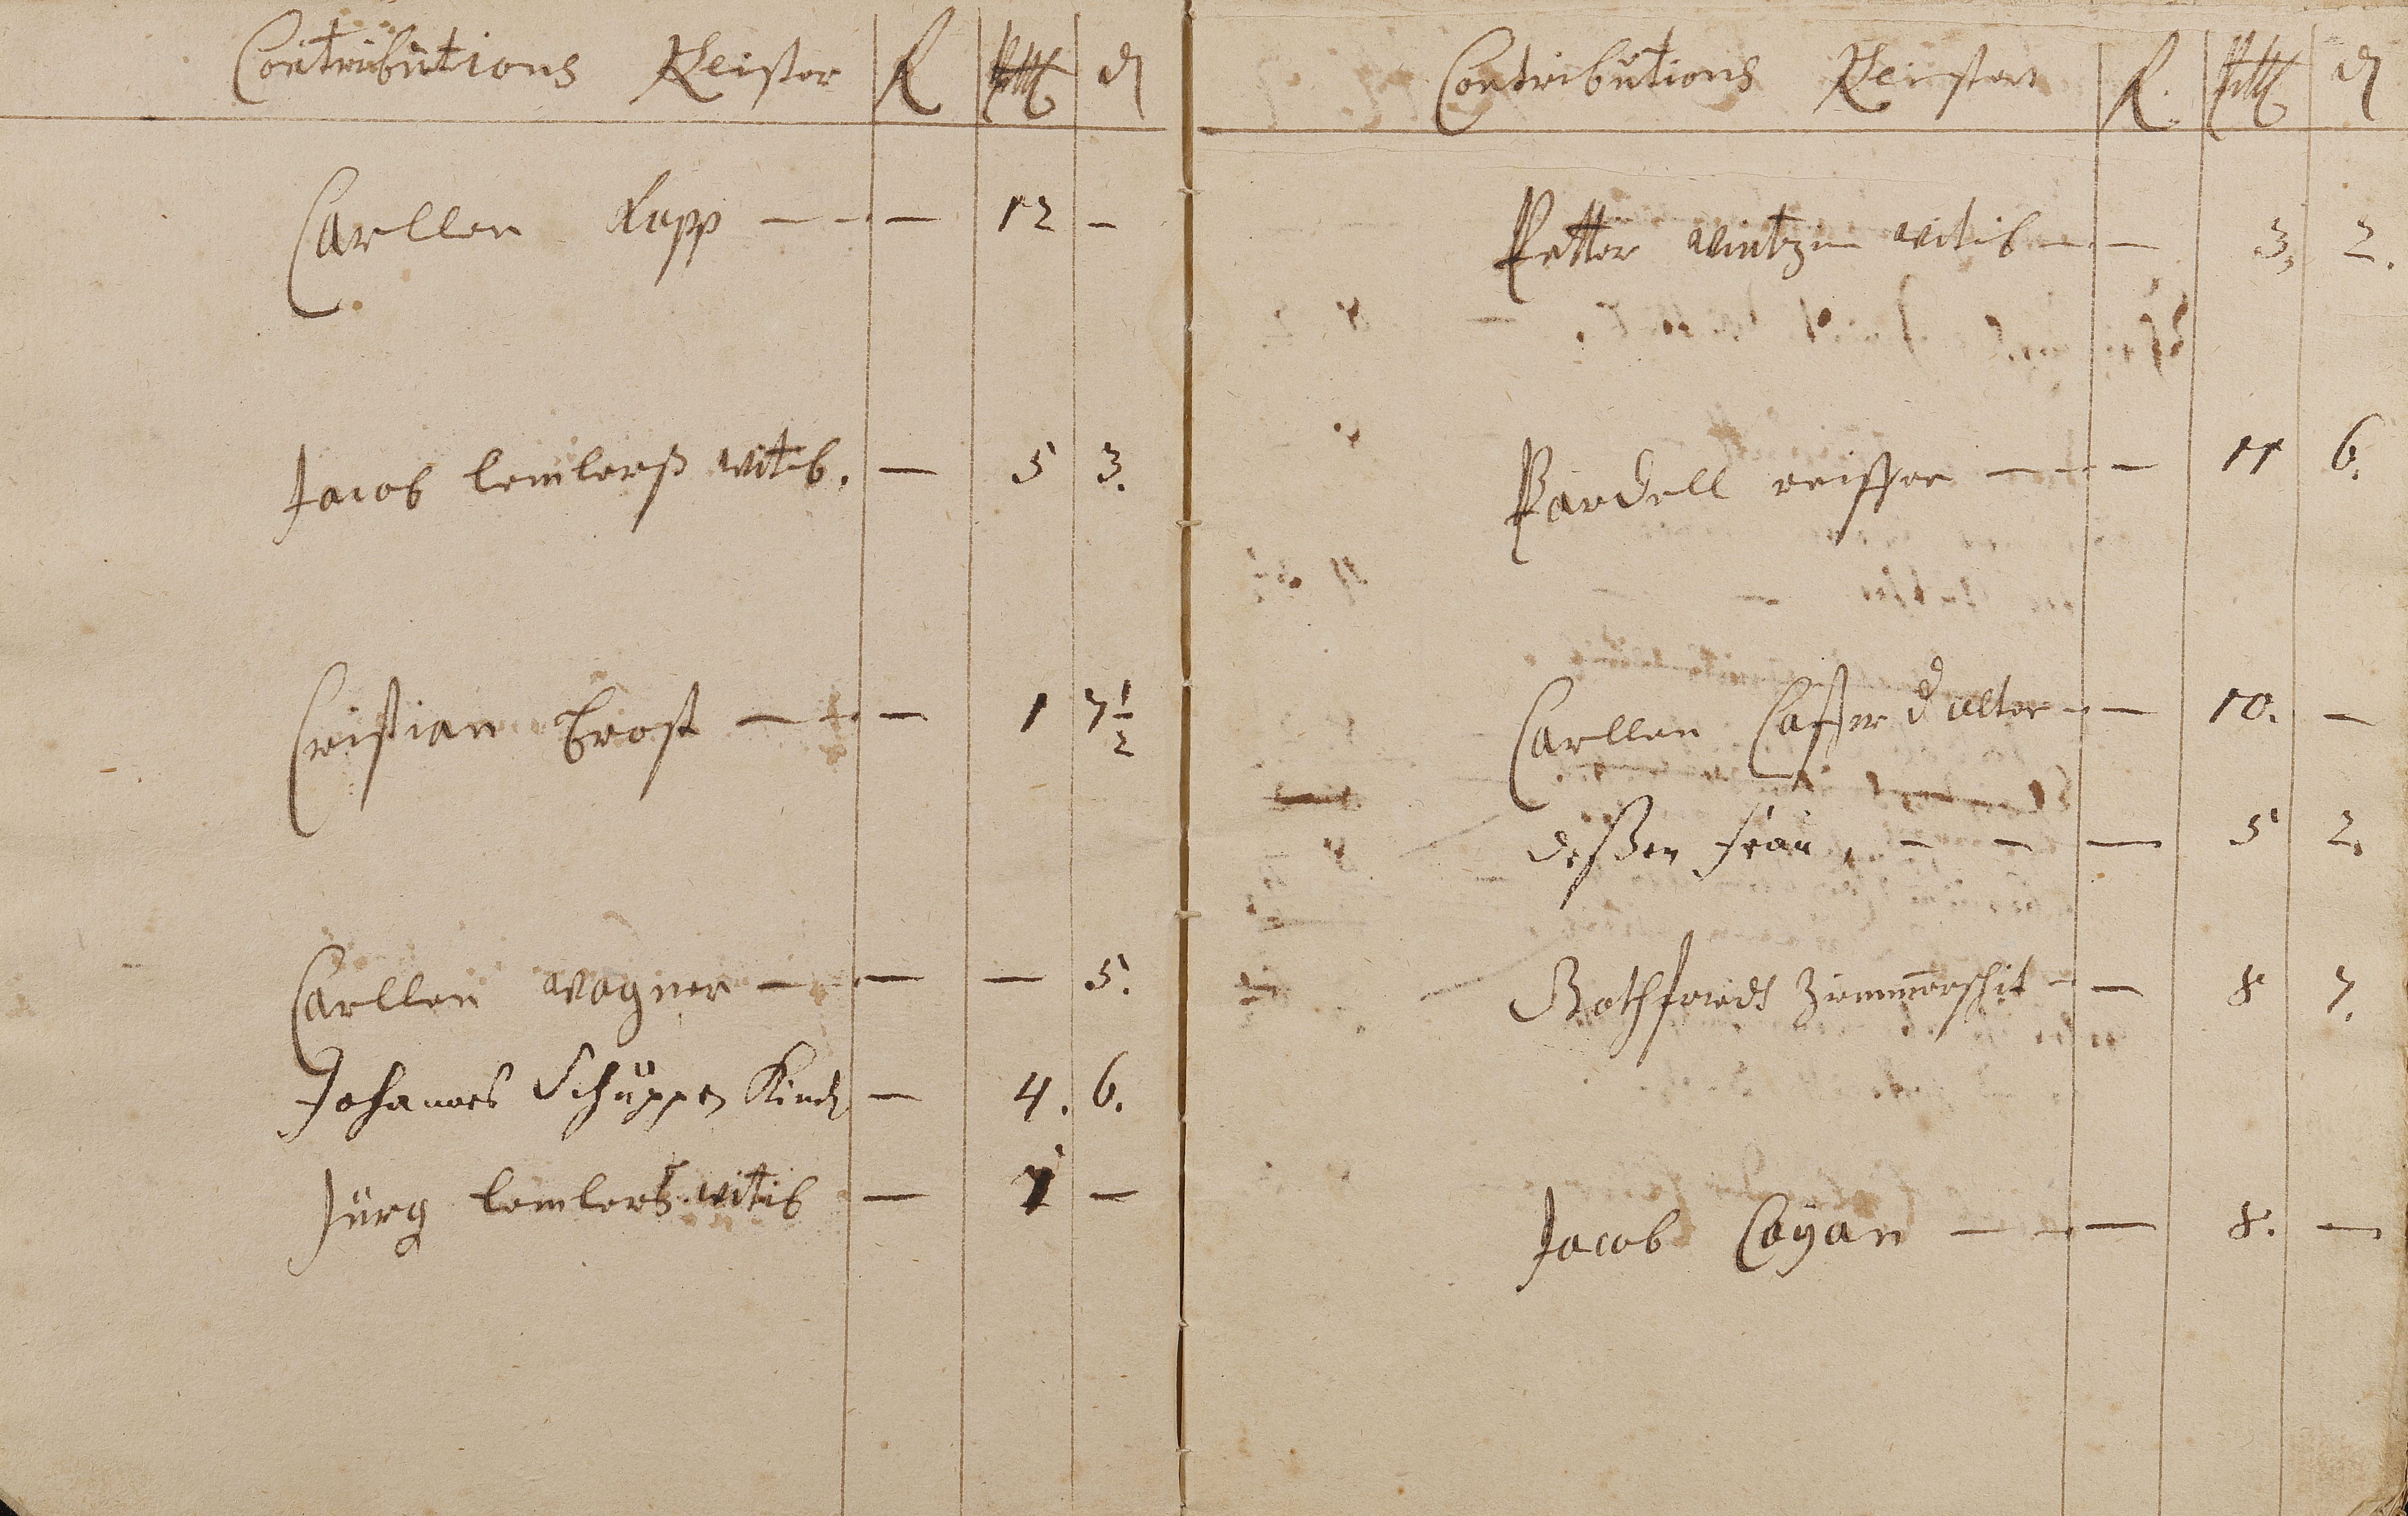 Contributions Reister R Alb ₰
Carllen Rapp — — — 12 —
Jacob lemlerß witib. — 5 3.
Cristian Erost — — — 1 7 1/2
Carllen wagner — — — 5.
Johannes Schüppen Kindt — 4. 6.
Jürg lemlers witib — 1 —
Contributions Reister R. Alb ₰
Petter wintzin witib — — 3, 2.
Pardell reisser — — — 11 6.
Carllen Casser d alter — — 10. —
deßen frau, — — — 5 2.
Zimmerschit — — 8 7.
Jacob Coÿan — — — 8. —